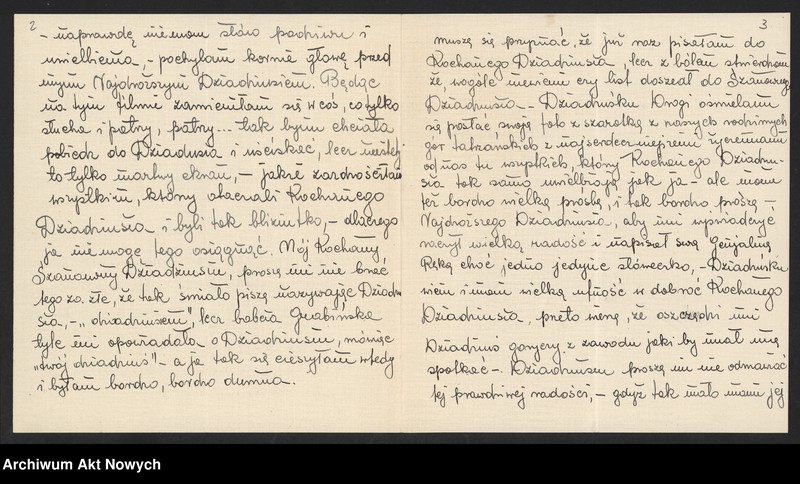 2
- naprawdę nie mam słów podziwu i
uwielbienia, - pochylam kornie głowę przed
mym Najdroższym Dziadziusiem. Będąc
na tym filmie zamieniłam się w coś, co tylko
słucha i patrzy, patrzy... tak bym chciała
pobiedz do Dziadusia i uściskać, lecz niestety
to tylko martwy ekran, - jakże zazdrościłam
wszystkim, którzy otaczali Kochanego
Dziadziusia i byli tak bliziutko, - dlaczego
ja nie mogę tego osiągnąć. Mój Kochany,
Szanowny Dziadziusiu, proszę mi nie brać
tego za złe, że tak śmiało piszę nazywając Dziadu
sia, - „dziadziusiem", lecz babcia Grabińska
tyle mi opowiadała o Dziadziusiu, mówiąc
„twój dziadziuś" - a ja tak się cieszyłam wtedy
i byłam bardzo, bardzo dumna.
3
muszę się przyznać, że już raz pisałam do
Kochanego Dziadziusia, lecz z bólem stwierdzam
że, wogóle niewiem czy list doszedł do Szanownego
Dziadziusia. - Dziadziuśku Drogi ośmielam
się posłać swoją foto z szarotką z naszych rodzinnych
gór tatrzańskich z najserdeczniejszemi życzeniami
od nas tu wszystkich, którzy Kochanego Dziadziu-
sia tak samo uwielbiają jak ja - ale mam
też bardzo wielką prośbę, i tak bardzo proszę -
Najdroższego Dziadziusia, aby mi wyświadczyć
raczył wielką radość i napisał swą Genjalną
Ręką choć jedno jedyne słóweczko, - Dziadziuśku
wiem i mam wielką ufność w dobroć Kochanego
Dziadziusia, przeto wierzę, że oszczędzi mi
Dziadziuś goryczy z zawodu jaki by miał mię
spotkać -. Dziadziusiu proszę mi nie odmawiać
tej prawdziwej radości, - gdyż tak mało mam jej
Archiwum Akt Nowych